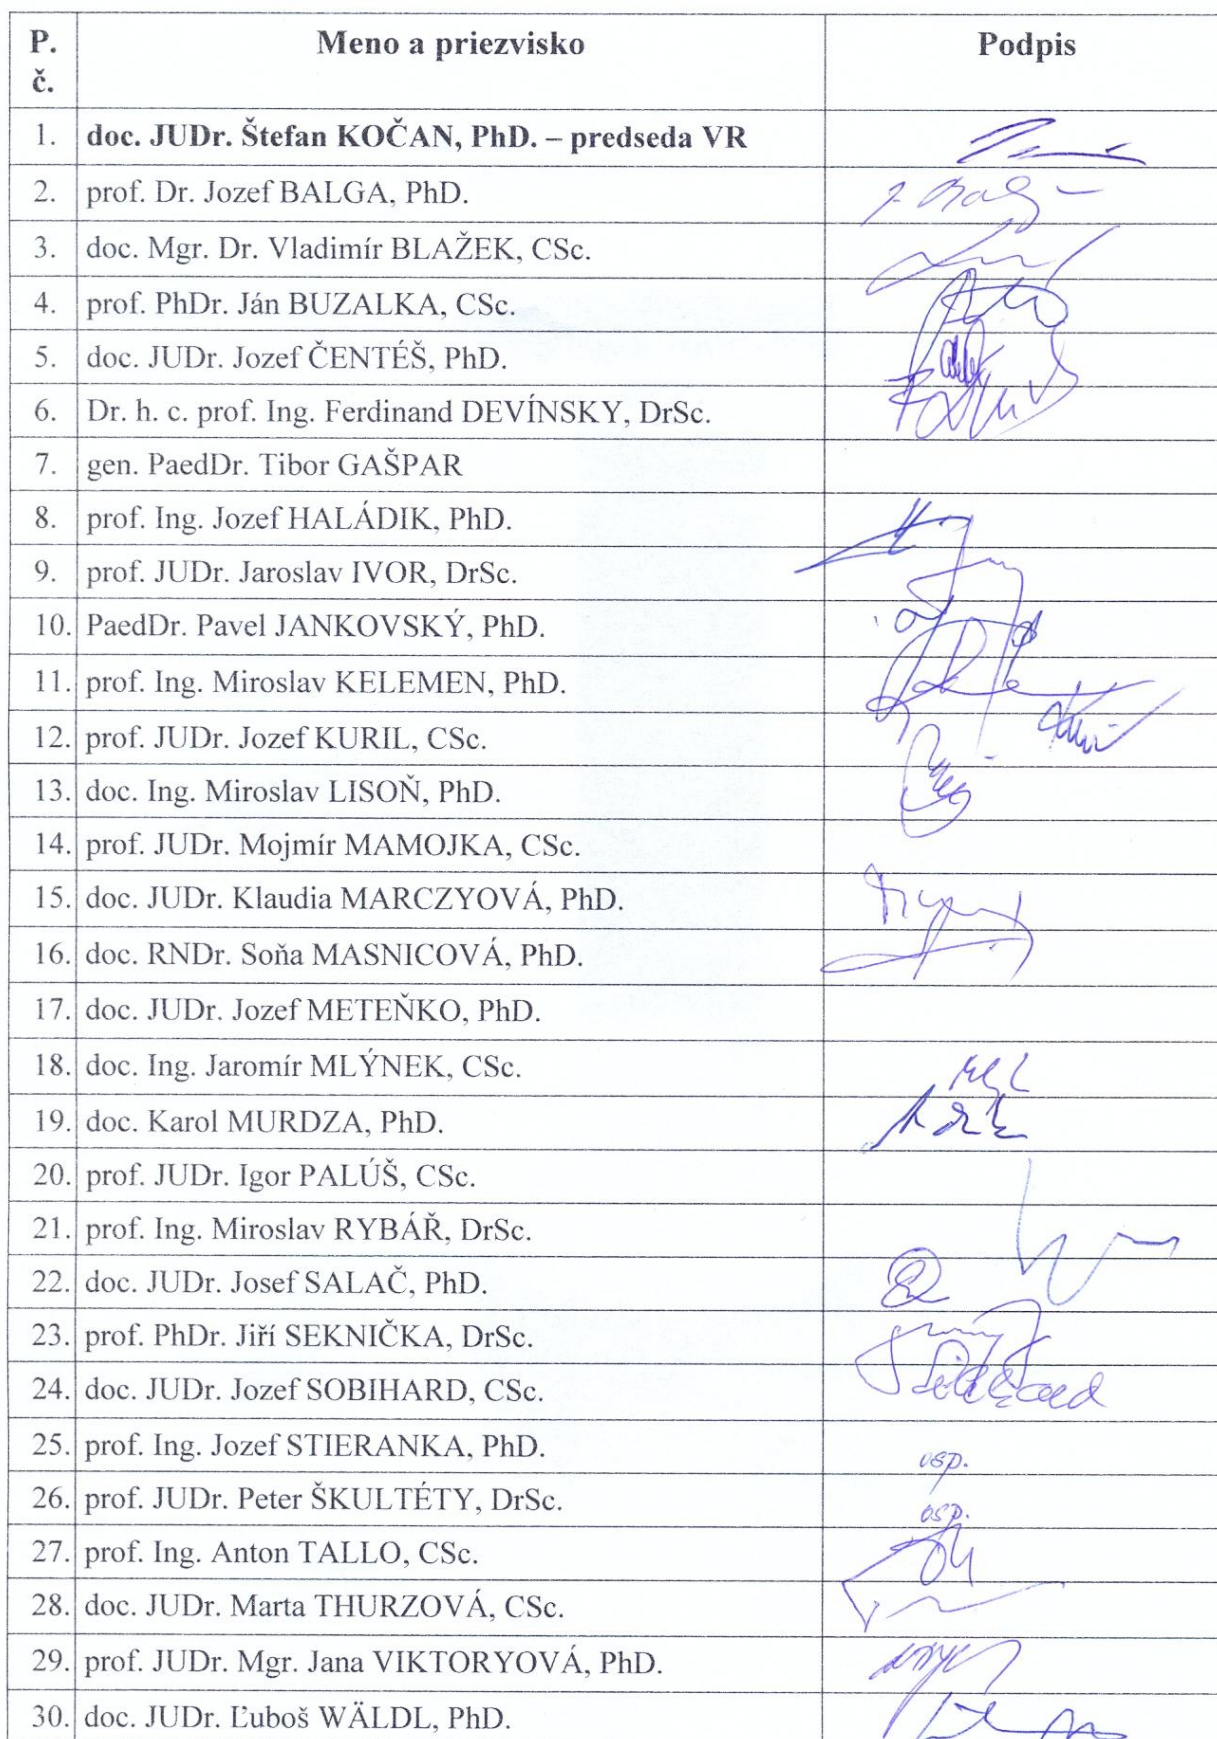 P. č. Meno a priezvisko Podpis
1. doc. JUDr. Štefan KOČAN, PhD. – predseda VR
2. prof. Dr. Jozef BALGA, PhD.
3. doc. Mgr. Dr. Vladimír BLAŽEK, CSc.
4. prof. PhDr. Ján BUZALKA, CSc.
5. doc. JUDr. Jozef ČENTÉŠ, PhD.
6. Dr. h. c. prof. Ing. Ferdinand DEVÍNSKY, DrSc.
7. gen. PaedDr. Tibor GAŠPAR
8. prof. Ing. Jozef HALÁDIK, PhD.
9. prof. JUDr. Jaroslav IVOR, DrSc.
10. PaedDr. Pavel JANKOVSKÝ, PhD.
11. prof. Ing. Miroslav KELEMEN, PhD.
12. prof. JUDr. Jozef KURIL, CSc.
13. doc. Ing. Miroslav LISOŇ, PhD.
14. prof. JUDr. Mojmír MAMOJKA, CSc.
15. doc. JUDr. Klaudia MARCZYOVÁ, PhD.
16. doc. RNDr. Soňa MASNICOVÁ, PhD.
17. doc. JUDr. Jozef METEŇKO, PhD.
18. doc. Ing. Jaromír MLÝNEK, CSc.
19. doc. Karol MURDZA, PhD.
20. prof. JUDr. Igor PALÚŠ, CSc.
21. prof. Ing. Miroslav RYBÁŘ, DrSc.
22. doc. JUDr. Josef SALAČ, PhD.
23. prof. PhDr. Jiří SEKNIČKA, DrSc.
24. doc. JUDr. Jozef SOBIHARD, CSc.
25. prof. Ing. Jozef STIERANKA, PhD. osp.
26. prof. JUDr. Peter ŠKULTÉTY, DrSc. osp.
27. prof. Ing. Anton TALLO, CSc.
28. doc. JUDr. Marta THURZOVÁ, CSc.
29. prof. JUDr. Mgr. Jana VIKTORYOVÁ, PhD.
30. doc. JUDr. Ľuboš WÄLDL, PhD.